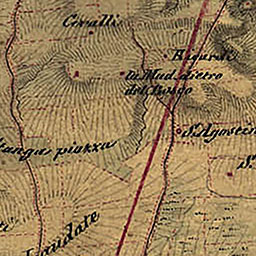 Cevalli
Rigardi
la Mad. dietro
del Bosco
S. Agostin
tanga piazza
S.
Laudate